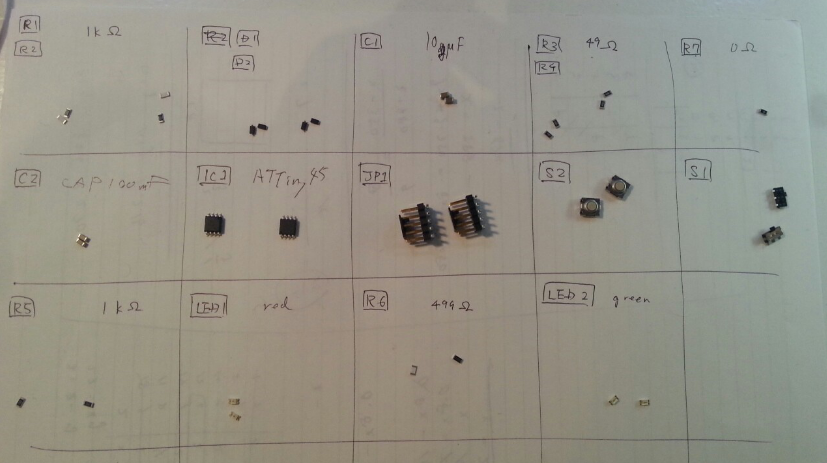 R1 1kΩ
R2
D1
D2
C1 10µF
R3 49Ω
R4
R7 0Ω
C2 CAP100nF
IC1 ATTiny45
JP1
S2
S1
R5 1kΩ
LED1 red
R6 499Ω
LED2 green